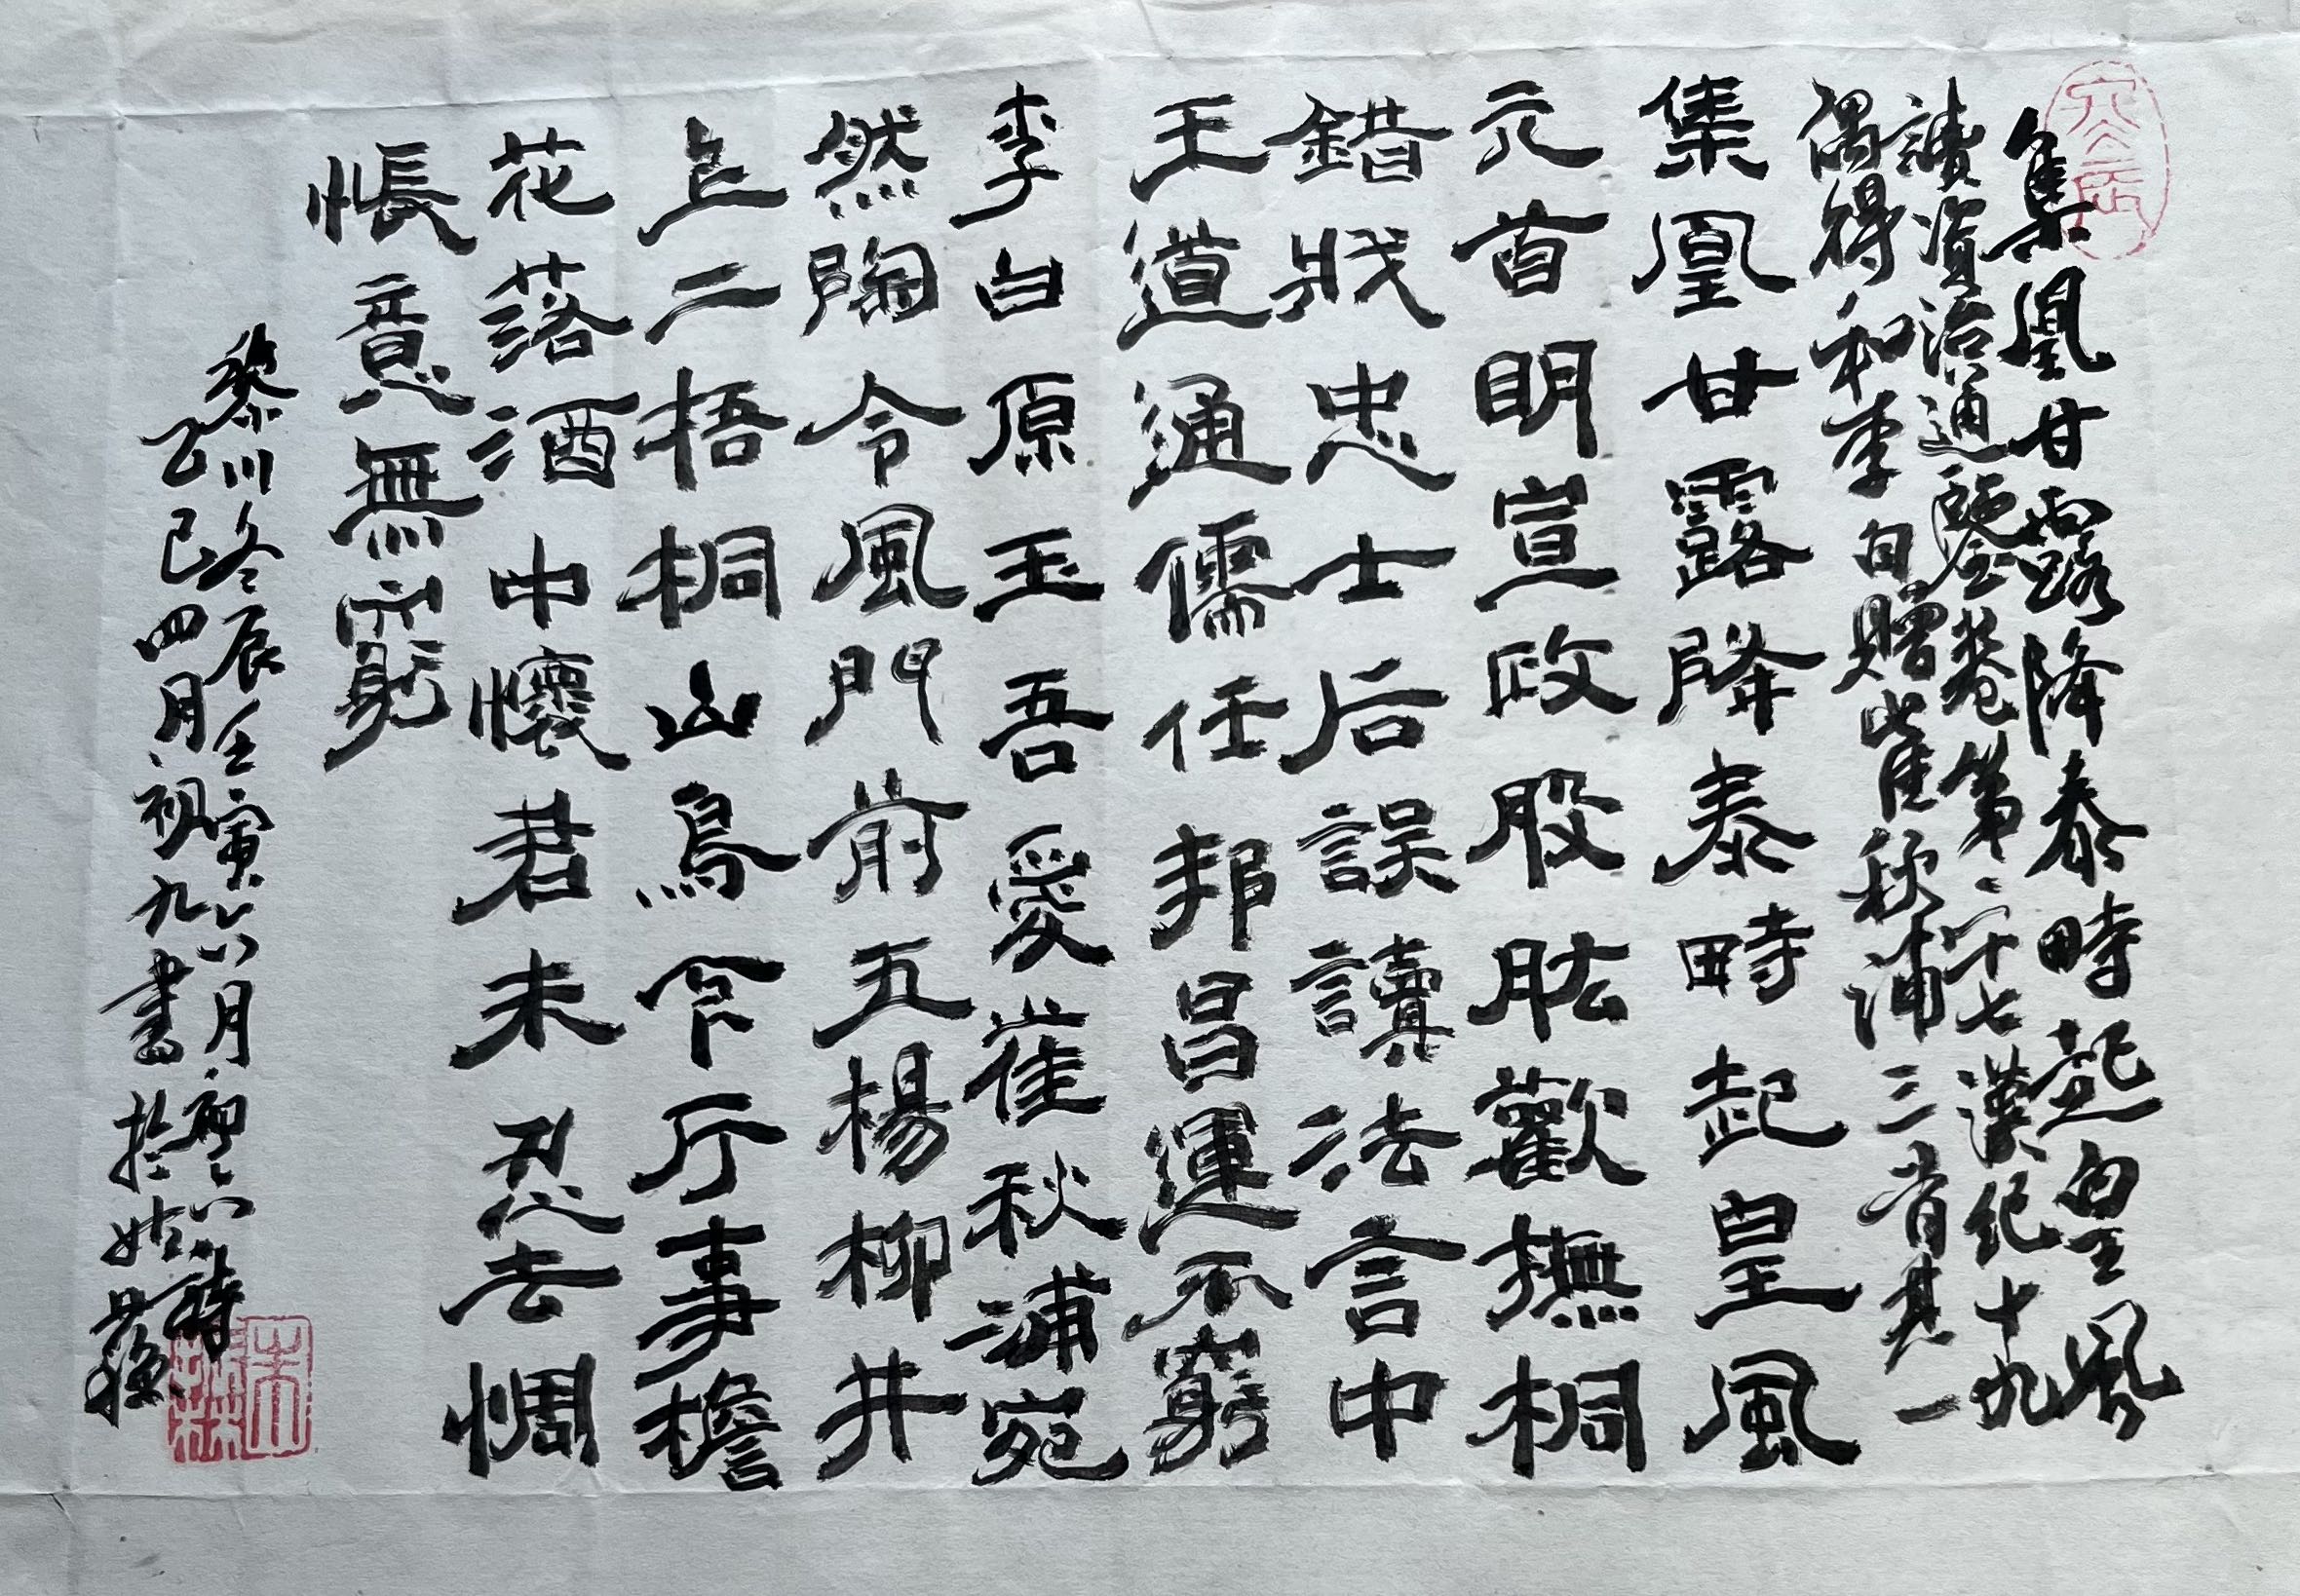 集凰甘露降泰畤起皇風
讀資治通鑒卷第二十七漢纪十九
偶得和李白贈崔秋浦三首其一
集凰甘露降泰畤起皇風
元首明宣政股肱歡撫桐
錯戕忠士后誤讀法言中
王道通儒任邦昌運不窮
李白原玉吾愛崔秋浦宛
然陶令風門前五楊柳井
上二梧桐山鳥下厅事檐
花落酒中懷君未忍去惆
悵意無窮
黎川終辰壬寅六月初六詩
乙巳四月初九書於姑